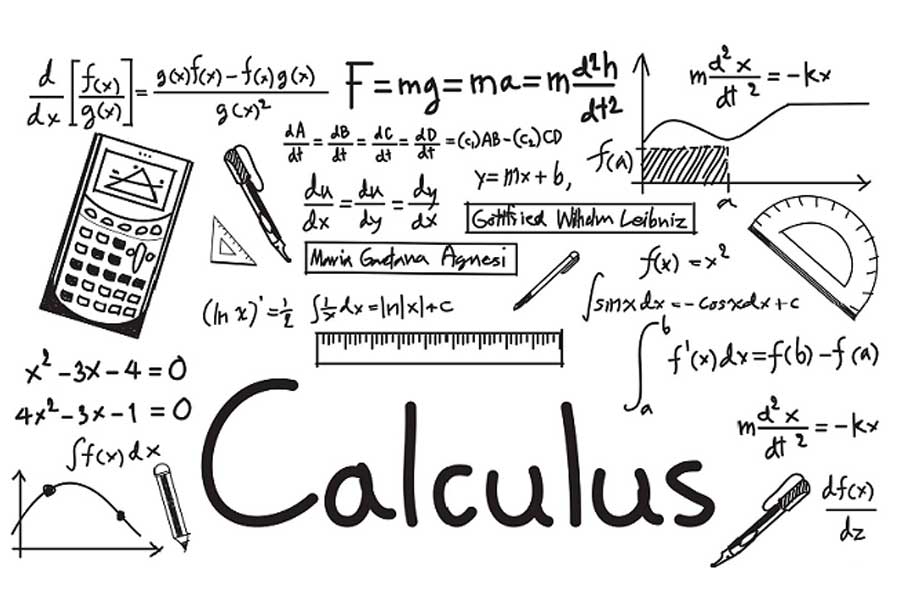 d/dx [f(x)/g(x)] = g(x)f(x) – f(x)g(x) / g(x)²
F = mg = ma = m d²h/dt2
m d²x/dt² = –kx
dA/dt = dB/dt = dC/dt = dD/dt = (c₁)AB – (c₂)CD
f(a)
a
du/dx = du/dy = dy/dx
y = mx + b,
Gottfried Wilhelm Leibniz
Maria Gaetana Agnesi
f(x) = x²
(ln x)' = 1/2
∫1/x dx = ln|x| + c
∫sinx dx = – cosxdx + c
∫ₐᵇ f'(x) dx = f(b) – f(a)
x² – 3x – 4 = 0
4x² – 3x – 1 = 0
m d²x/dt² = –kx
∫f(x) dx
Calculus
df(x)/dz